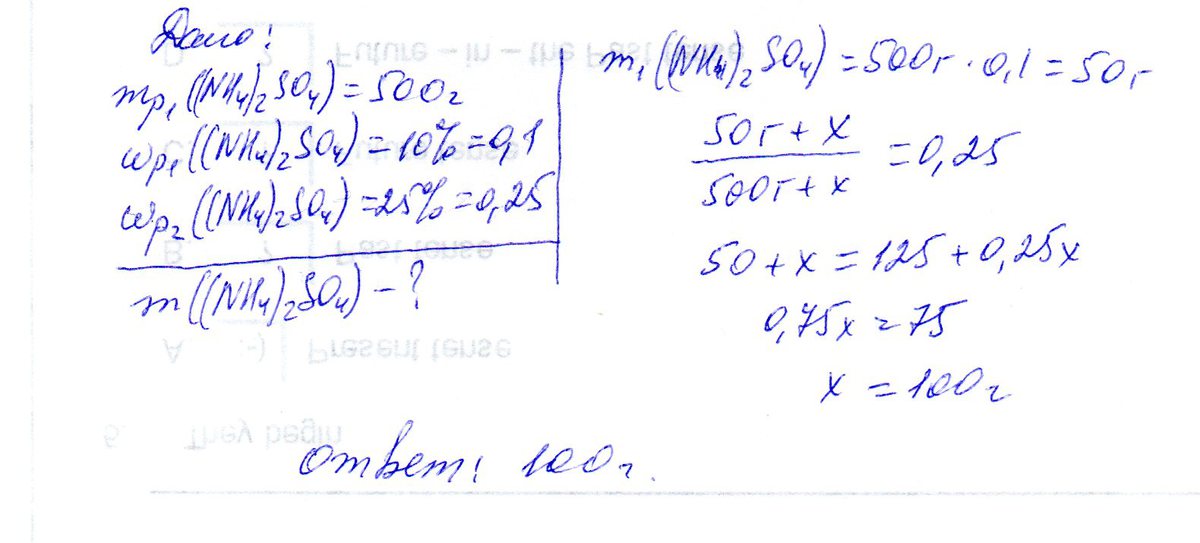 Дано:
mp₁((NH₄)₂SO₄) = 500г
ωp₁((NH₄)₂SO₄) = 10% = 0,1
ωp₂((NH₄)₂SO₄) = 25% = 0,25
m((NH₄)₂SO₄) - ?
m₁((NH₄)₂SO₄) = 500г · 0,1 = 50г
50г + x
500г + x
= 0,25
50 + x = 125 + 0,25x
0,75x = 75
x = 100г
Ответ: 100г.
Future – in – the Past tense
Past tense
B.
A :-) Present tense
6. They begin